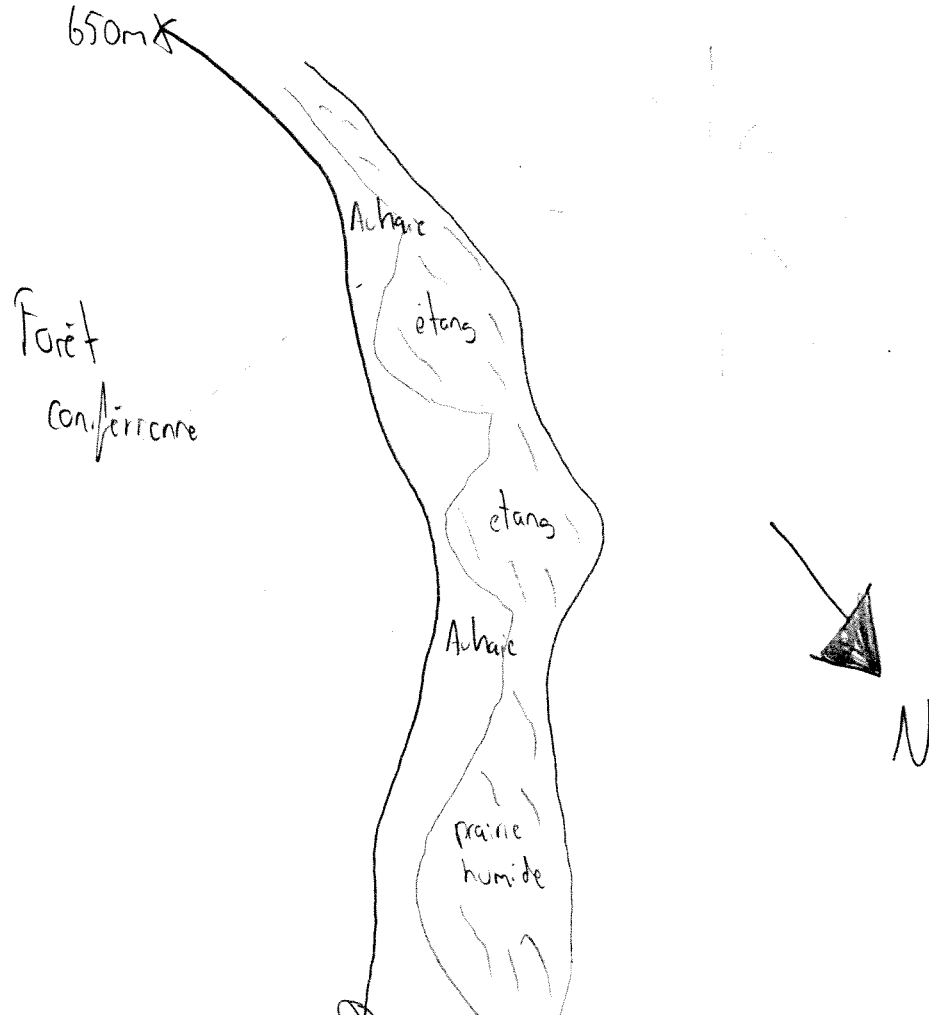 650m
Aulnaie
étang
Forêt
coniférienne
étang
Aulnaie
N
prairie
humide